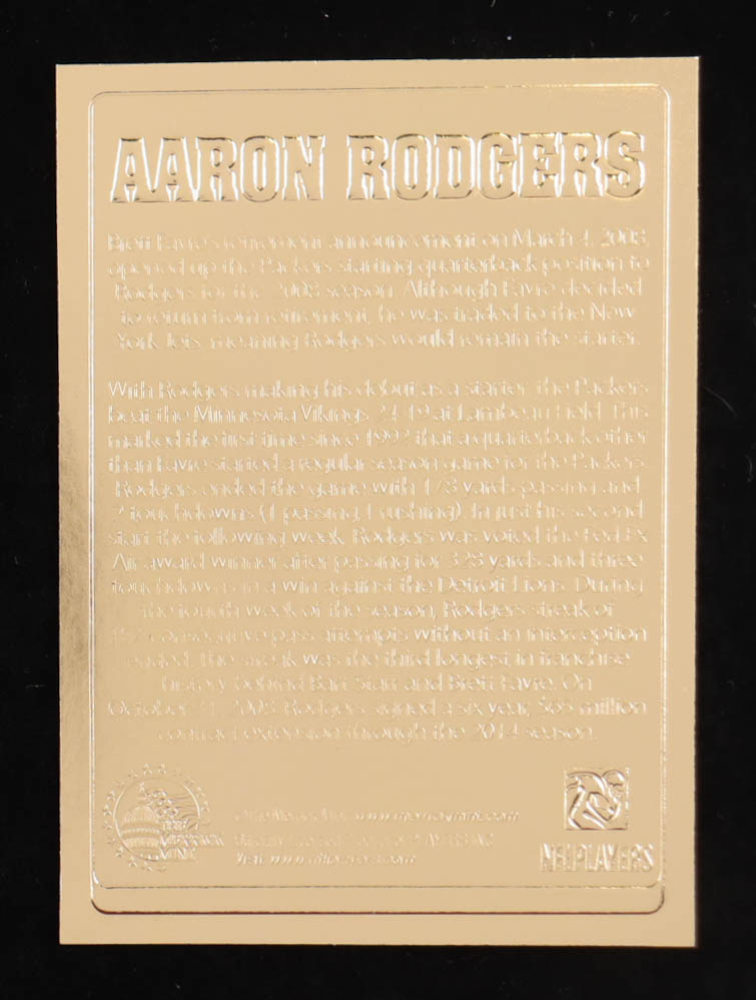 AARON RODGERS
Brett Favre's retirement announcement on March 4, 2008,
opened up the Packers starting quarterback position to
Rodgers for the 2008 season. Although Favre decided
to return from retirement, he was traded to the New
York Jets, meaning Rodgers would remain the starter.
With Rodgers making his debut as a starter, the Packers
beat the Minnesota Vikings 24-19 at Lambeau Field. This
marked the first time since 1992 that a quarterback other
than Favre started a regular season game for the Packers.
Rodgers ended the game with 178 yards passing and
2 touchdowns (1 passing, 1 rushing). In just his second
start the following week, Rodgers was voted the Fed Ex
Air award winner after passing for 328 yards and three
touchdowns in a win against the Detroit Lions. During
the fourth week of the season, Rodgers streak of
157 consecutive pass attempts without an interception
ended. The streak was the third longest in franchise
history behind Bart Starr and Brett Favre. On
October 31, 2008 Rodgers signed a six year, $65 million
contract extension through the 2014 season.
MINT
www.merrickmint.com
Visit
NFLPLAYERS